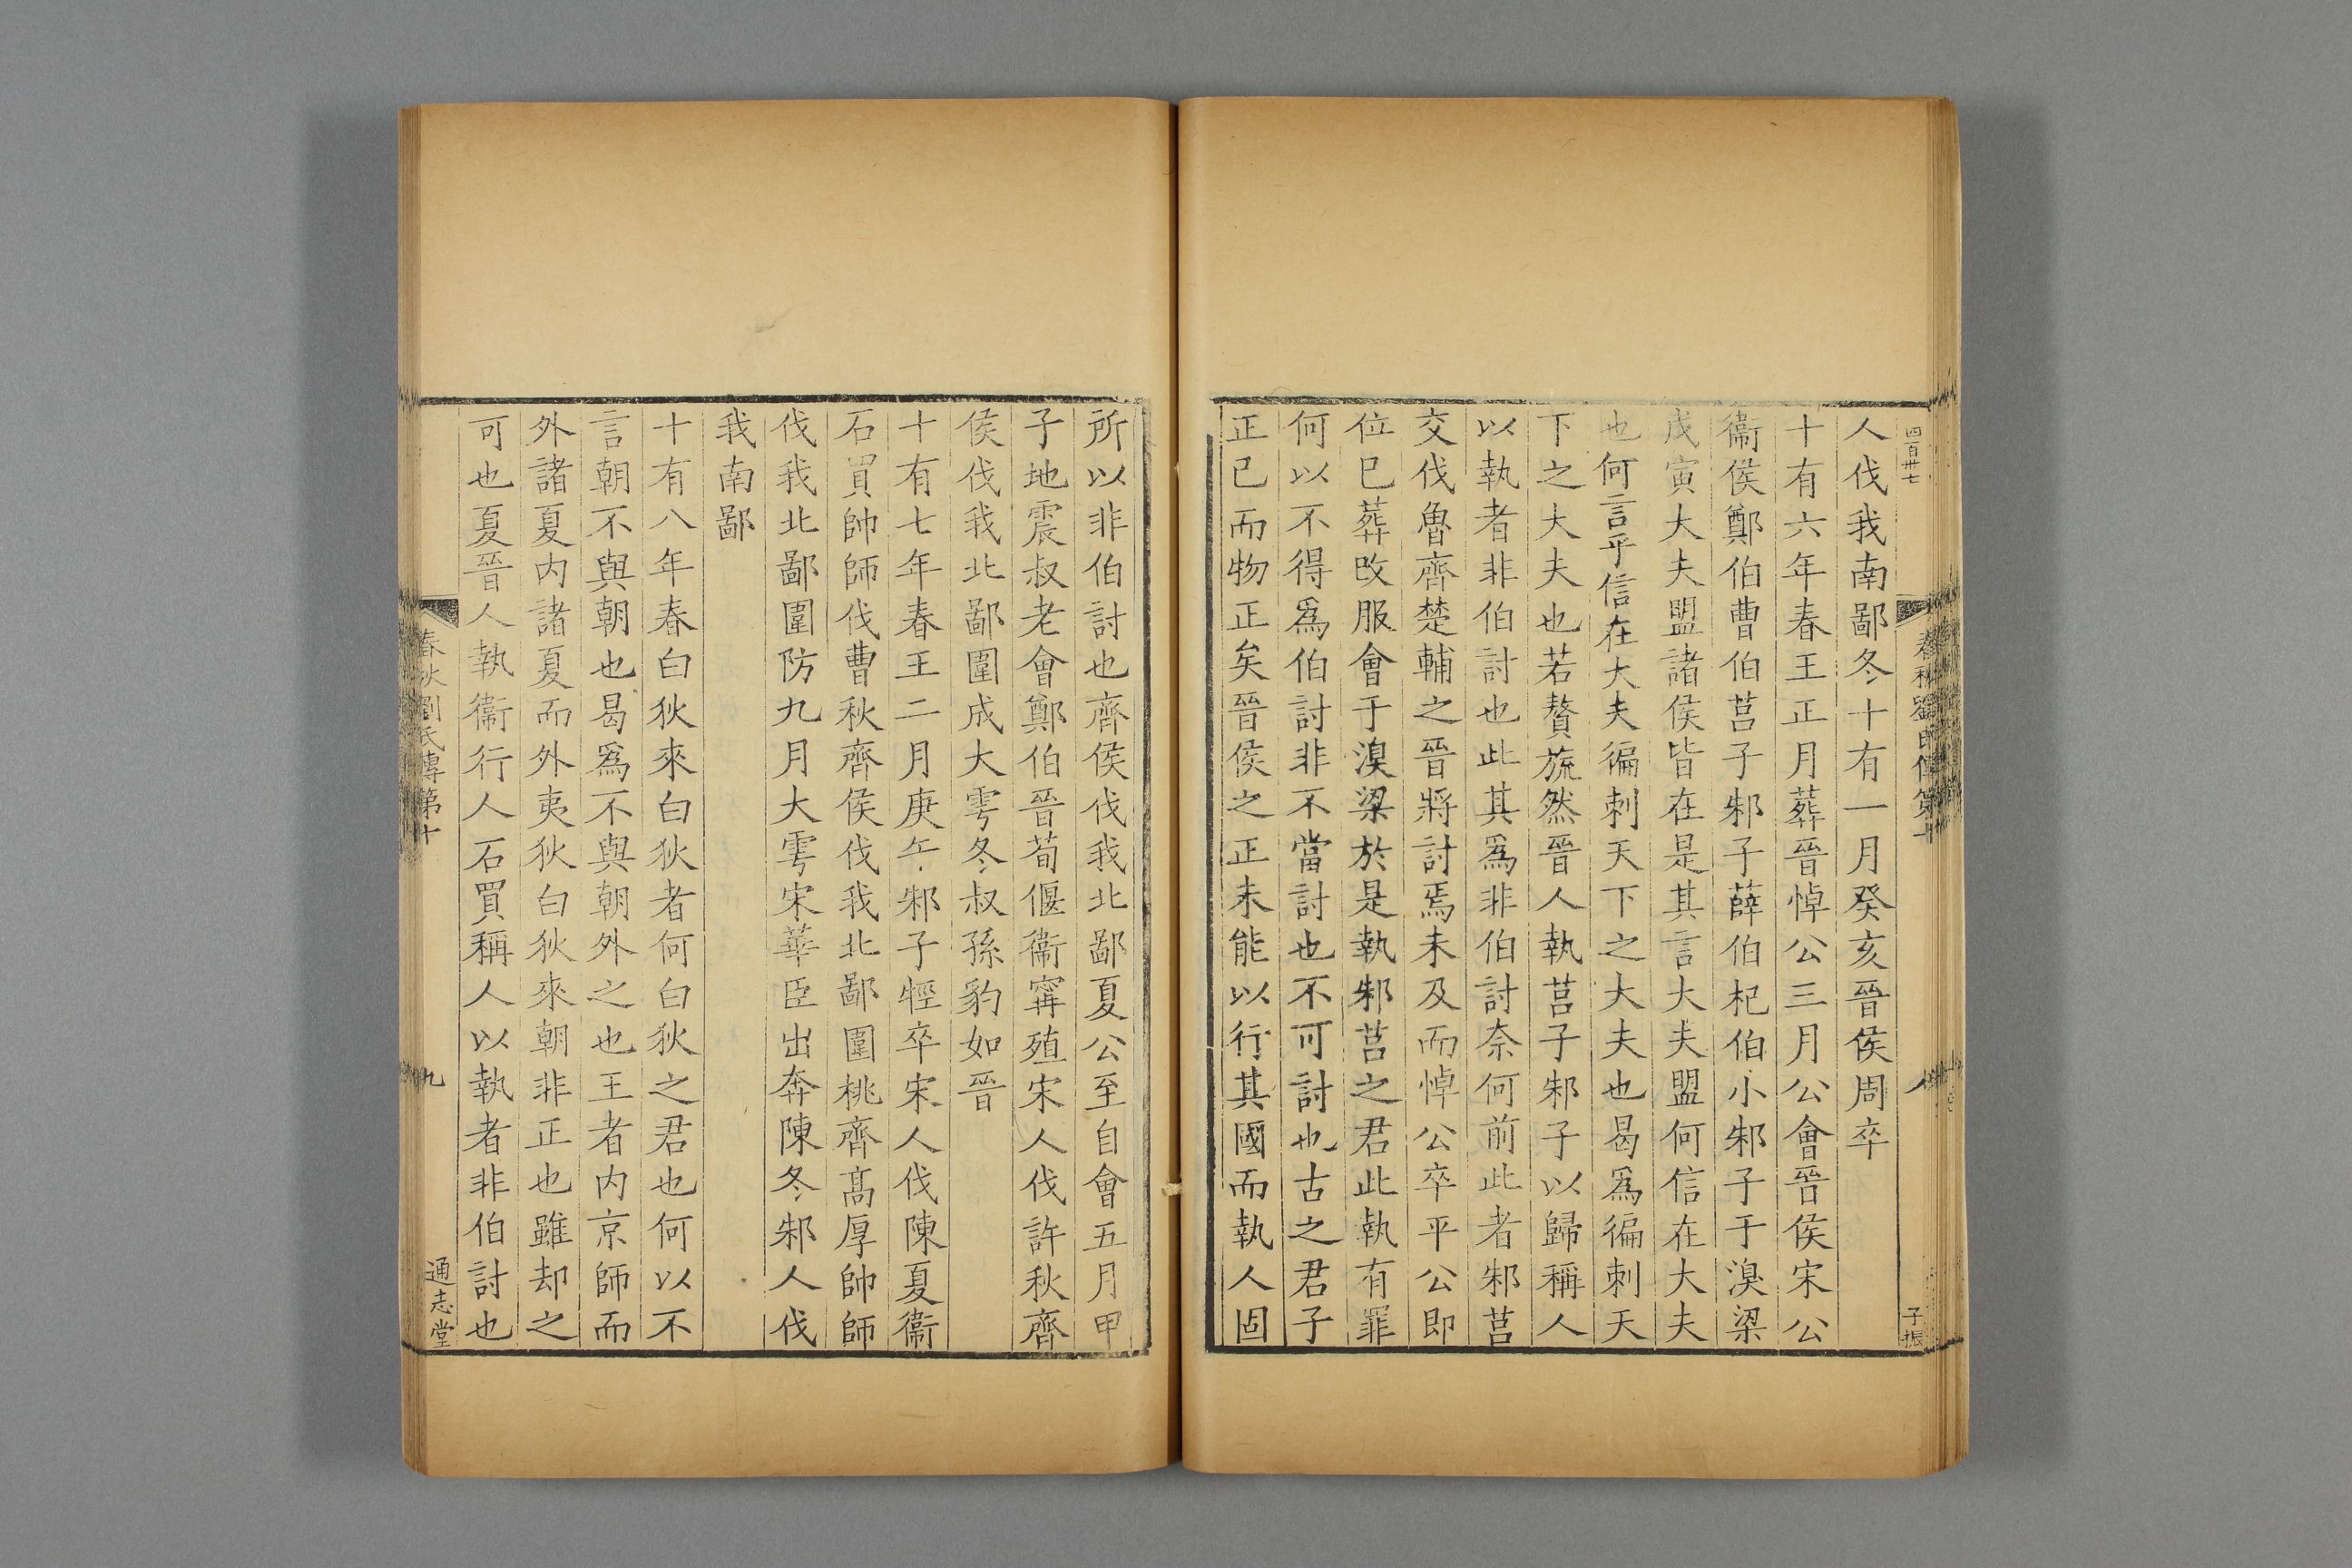 四百卅七
春秋劉氏傳第十
八
子振
人伐我南鄙冬十有一月癸亥晉侯周卒
十有六年春王正月葬晉悼公三月公會晉侯宋公
衞侯鄭伯曹伯莒子邾子薛伯杞伯小邾子于溴梁
戊寅大夫盟諸侯皆在是其言大夫盟何信在大夫
也何言乎信在大夫徧刺天下之大夫也曷爲徧刺天
下之大夫也若贅旒然晉人執莒子邾子以歸稱人
以執者非伯討也此其爲非伯討奈何前此者邾莒
交伐魯齊楚輔之晉將討焉未及而悼公卒平公即
位已葬改服會于溴梁於是執邾莒之君此執有罪
何以不得爲伯討非不當討也不可討也古之君子
正已而物正矣晉侯之正未能以行其國而執人固
所以非伯討也齊侯伐我北鄙夏公至自會五月甲
子地震叔老會鄭伯晉荀偃衞甯殖宋人伐許秋齊
侯伐我北鄙圍成大雩冬叔孫豹如晉
十有七年春王二月庚午邾子牼卒宋人伐陳夏衞
石買帥師伐曹秋齊侯伐我北鄙圍桃齊髙厚帥師
伐我北鄙圍防九月大雩宋華臣出奔陳冬邾人伐
我南鄙
十有八年春白狄來白狄者何白狄之君也何以不
言朝不與朝也曷爲不與朝外之也王者内京師而
外諸夏内諸夏而外夷狄白狄來朝非正也雖却之
可也夏晉人執衞行人石買稱人以執者非伯討也
春秋劉氏傳第十
九
通志堂